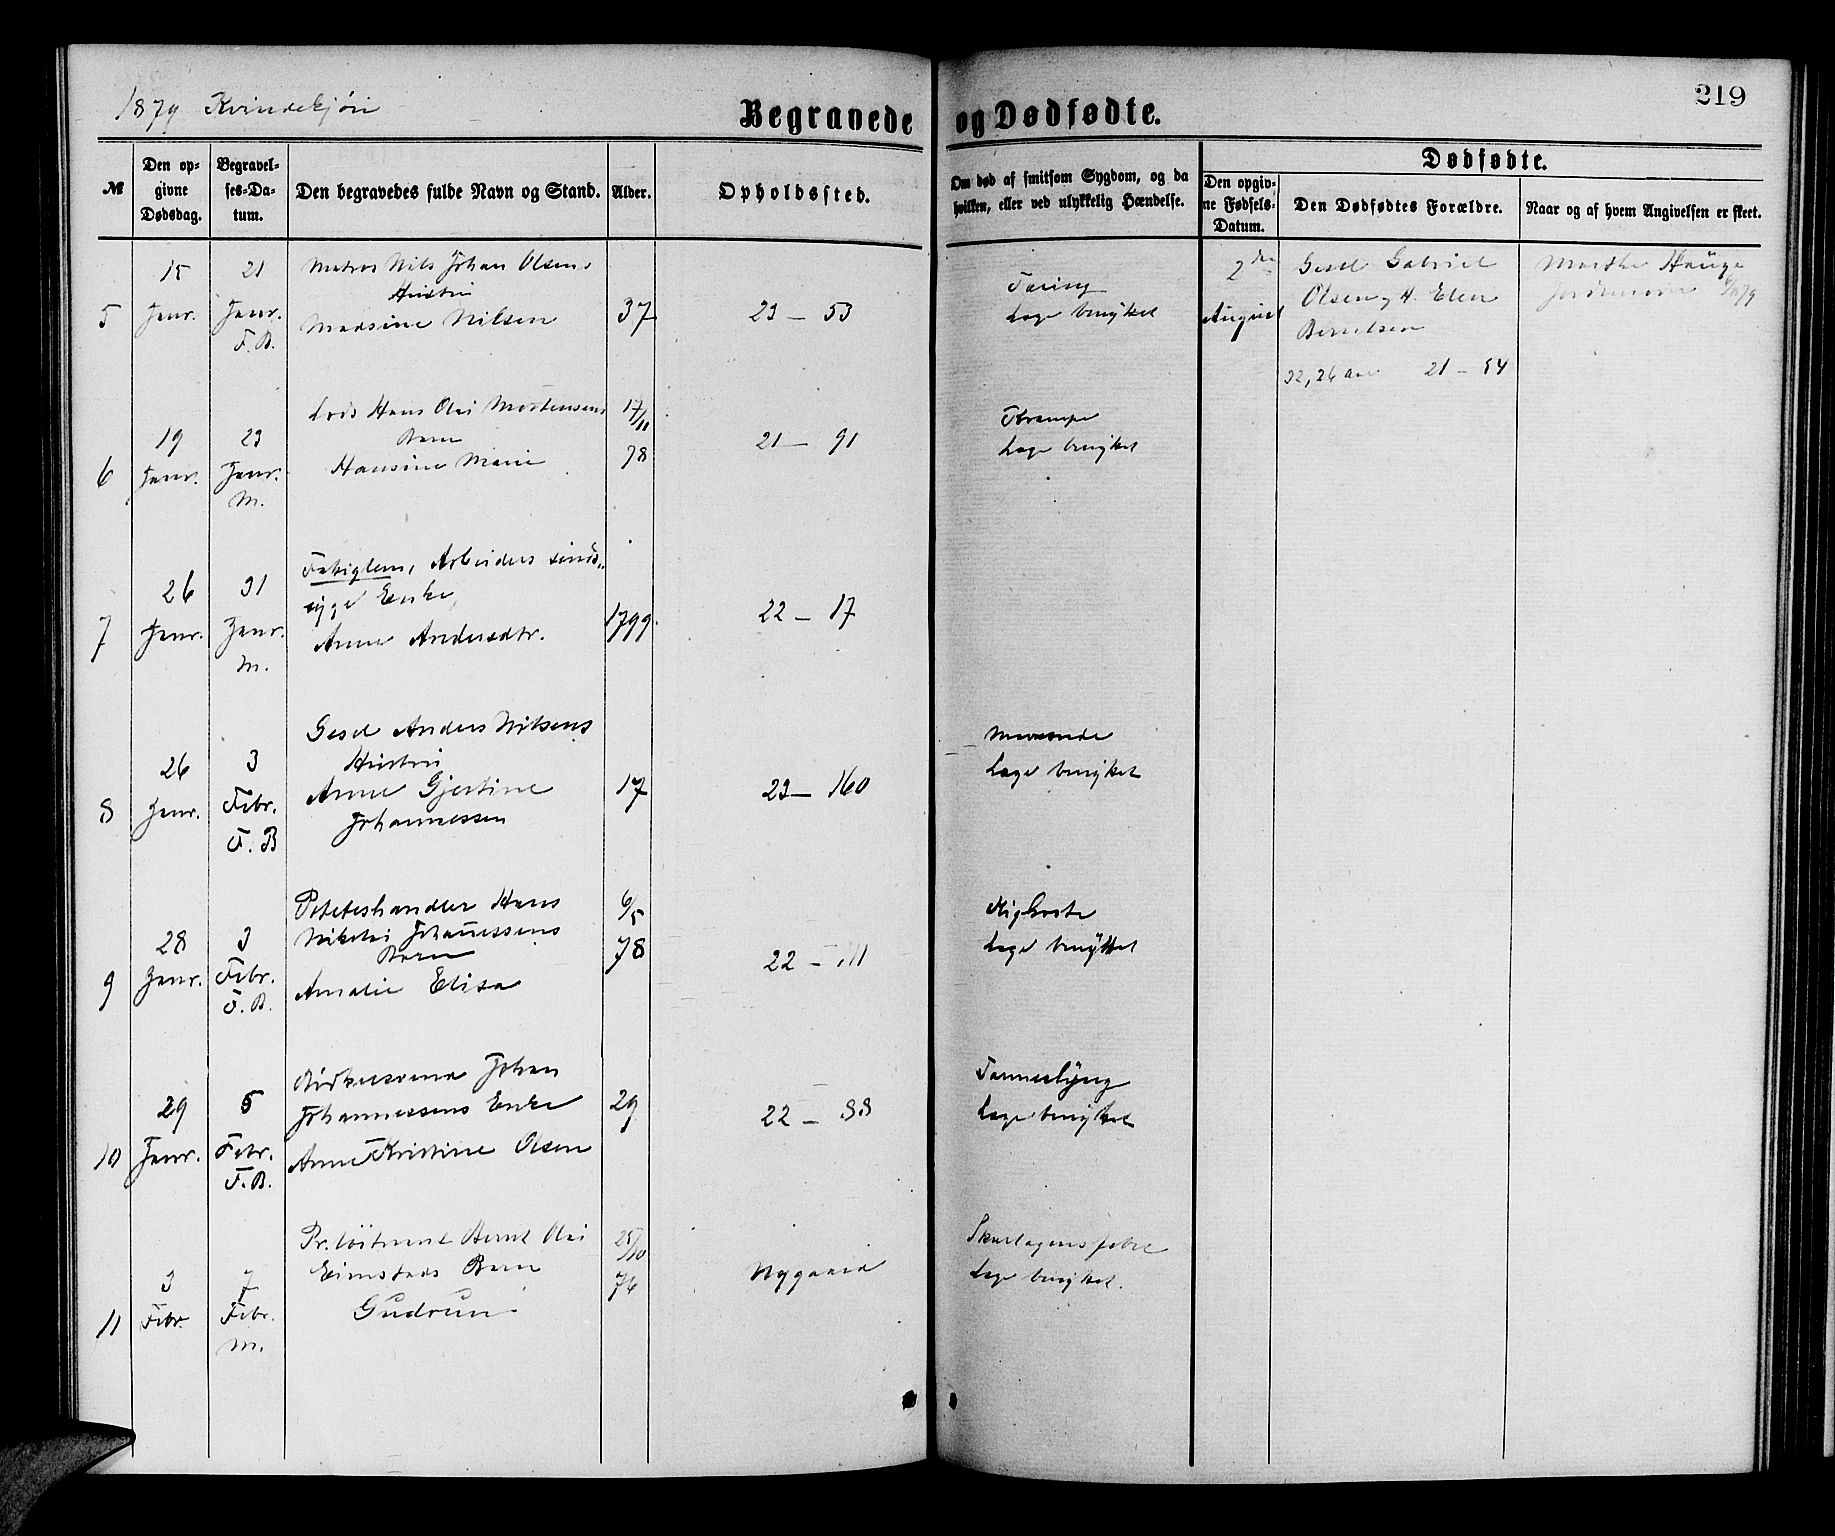 1879 Kvindekjøn
Begravede og Dødfødte.
219
№
Den opgivne Dødsdag.
Begravelses-Datum.
Den begravedes fulde Navn og Stand.
Alder.
Opholdssted.
Om død af smitsom Sygdom, og da hvilken, eller ved ulykkelig Hændelse.
Dødfødte.
Den opgivne Fødsels-Datum.
Den Dødfødtes Forældre.
Naar og af hvem Angivelsen er skeet.
5
15 Janr.
21 Janr. F. B.
Matros Nils Johan Olsens
Hustru
Madsine Nilsen
37
23 – 53
Tæring
Læge benyttet
2den August
Gesel Gabriel
Olsen og H. Elen
Berntsen
32, 26 Aar 21 – 54
Marthe Hauge
Jordmoder
6
19 Janr.
23 Janr. M.
Lods Hans Olai Mortensens
Barn
Hansine Marie
17/11 78
21 – 91
Krampe
Læge benyttet
7
26 Janr.
31 Janr. M.
Fattiglem, Arbeiders sinds-
syge Enke
Anne Andersdtr.
1799.
22 – 17
8
26 Janr.
3 Febr. F. B
Gesel Anders Nilsens
Hustru
Anne Gjertine
Johannessen
17
23 – 160
Læge benyttet
9
28 Janr.
3 Febr. F. B.
Potteteshandler Hans
Nikolai Johannessens
Barn
Amalie Elisa
6/5 78
22 – 111
Kighoste
Læge benyttet
10
29 Janr.
5 Febr. F. B.
Johan
Johannessens Enke
Anne Kristine Olsen
29
22 – 88
Læge benyttet
11
3 Febr
7 Febr. M.
Pr. løitnant Bernt Olai
Eimstads Barn
Gudrun
25/10 76
Nygaard
Skarlagensfeber
Læge benyttet.